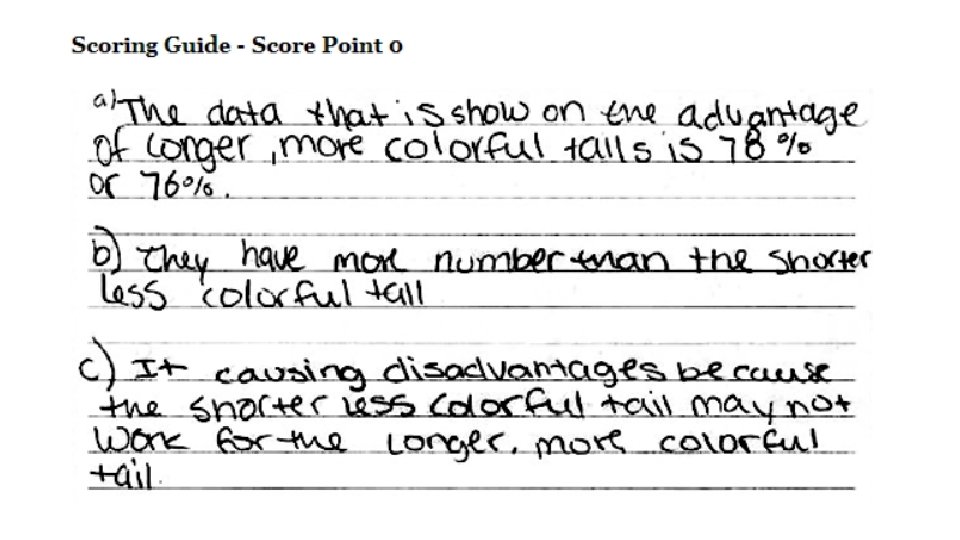 Scoring Guide - Score Point 0
a) The data that is show on the advantage
of longer, more colorful talls is 78%
or 76%.
b) They have more number than the shorter
less colorful tall
c) It causing disadvantages because
the shorter less colorful tail may not
work for the longer, more colorful
tail.